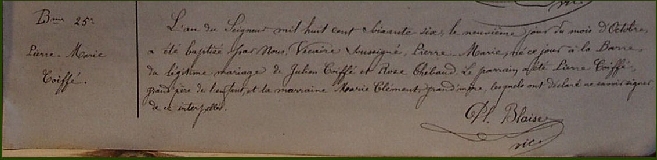 Bme 25e
Pierre-Marie
Coiffé.
L'an du Seigneur mil huit cent soixante six, le neuvième jour du mois d'Octobre,
a été baptisé par Nous, Vicaire Soussigné, Pierre-Marie, né ce jour à la Barre,
du légitime mariage de Julien Coiffé et Rose Chebaud. Le parrain a été Pierre Coiffé,
grand père de l'enfant, et la marraine Marie Clément, grand'mère, lesquels ont déclaré ne savoir signer
de ce interpellés.
Ph. Blaise
vic.